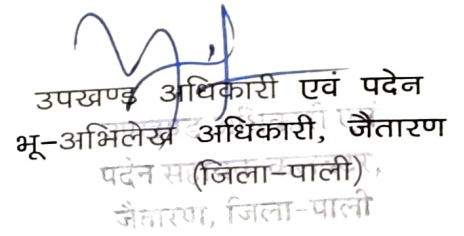 उपखण्ड अधिकारी एवं पदेन
भू-अभिलेख अधिकारी, जैतारण
(जिला-पाली)
पदेन
जैतारण, जिला-पाली